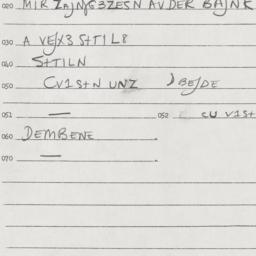 020 MIR ZAJNG3ZESN AV DER BAJNK
030 A VEJX3 SHTIL8
040 SHTILN
050 CV1SHN UNZ BEJDE
051 — 052 CU V1SH
060 DEMBENE
070 —